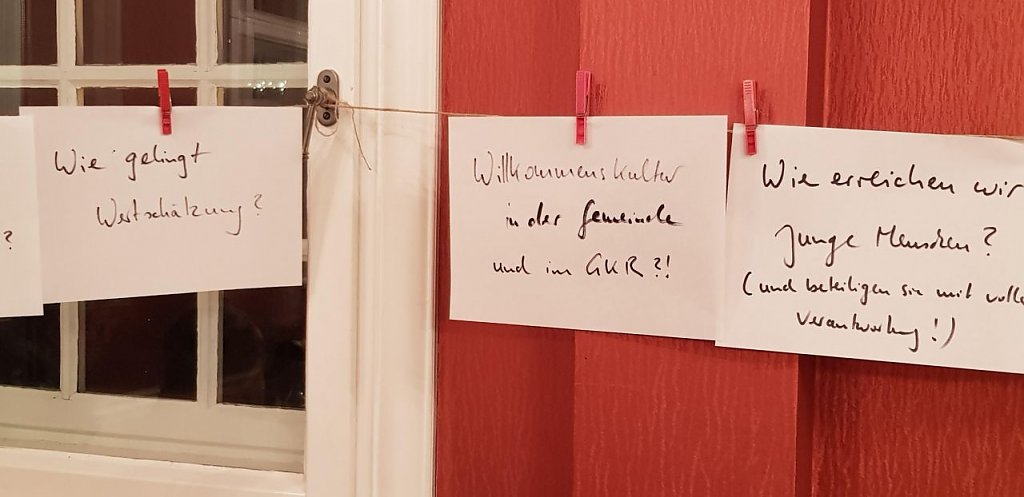 ?
Wie gelingt
Wertschätzung?
Willkommenskultur
in der Gemeinde
und im GKR?!
Wie erreichen wir
junge Menschen?
(und beteiligen sie mit volle
Verantwortung!)